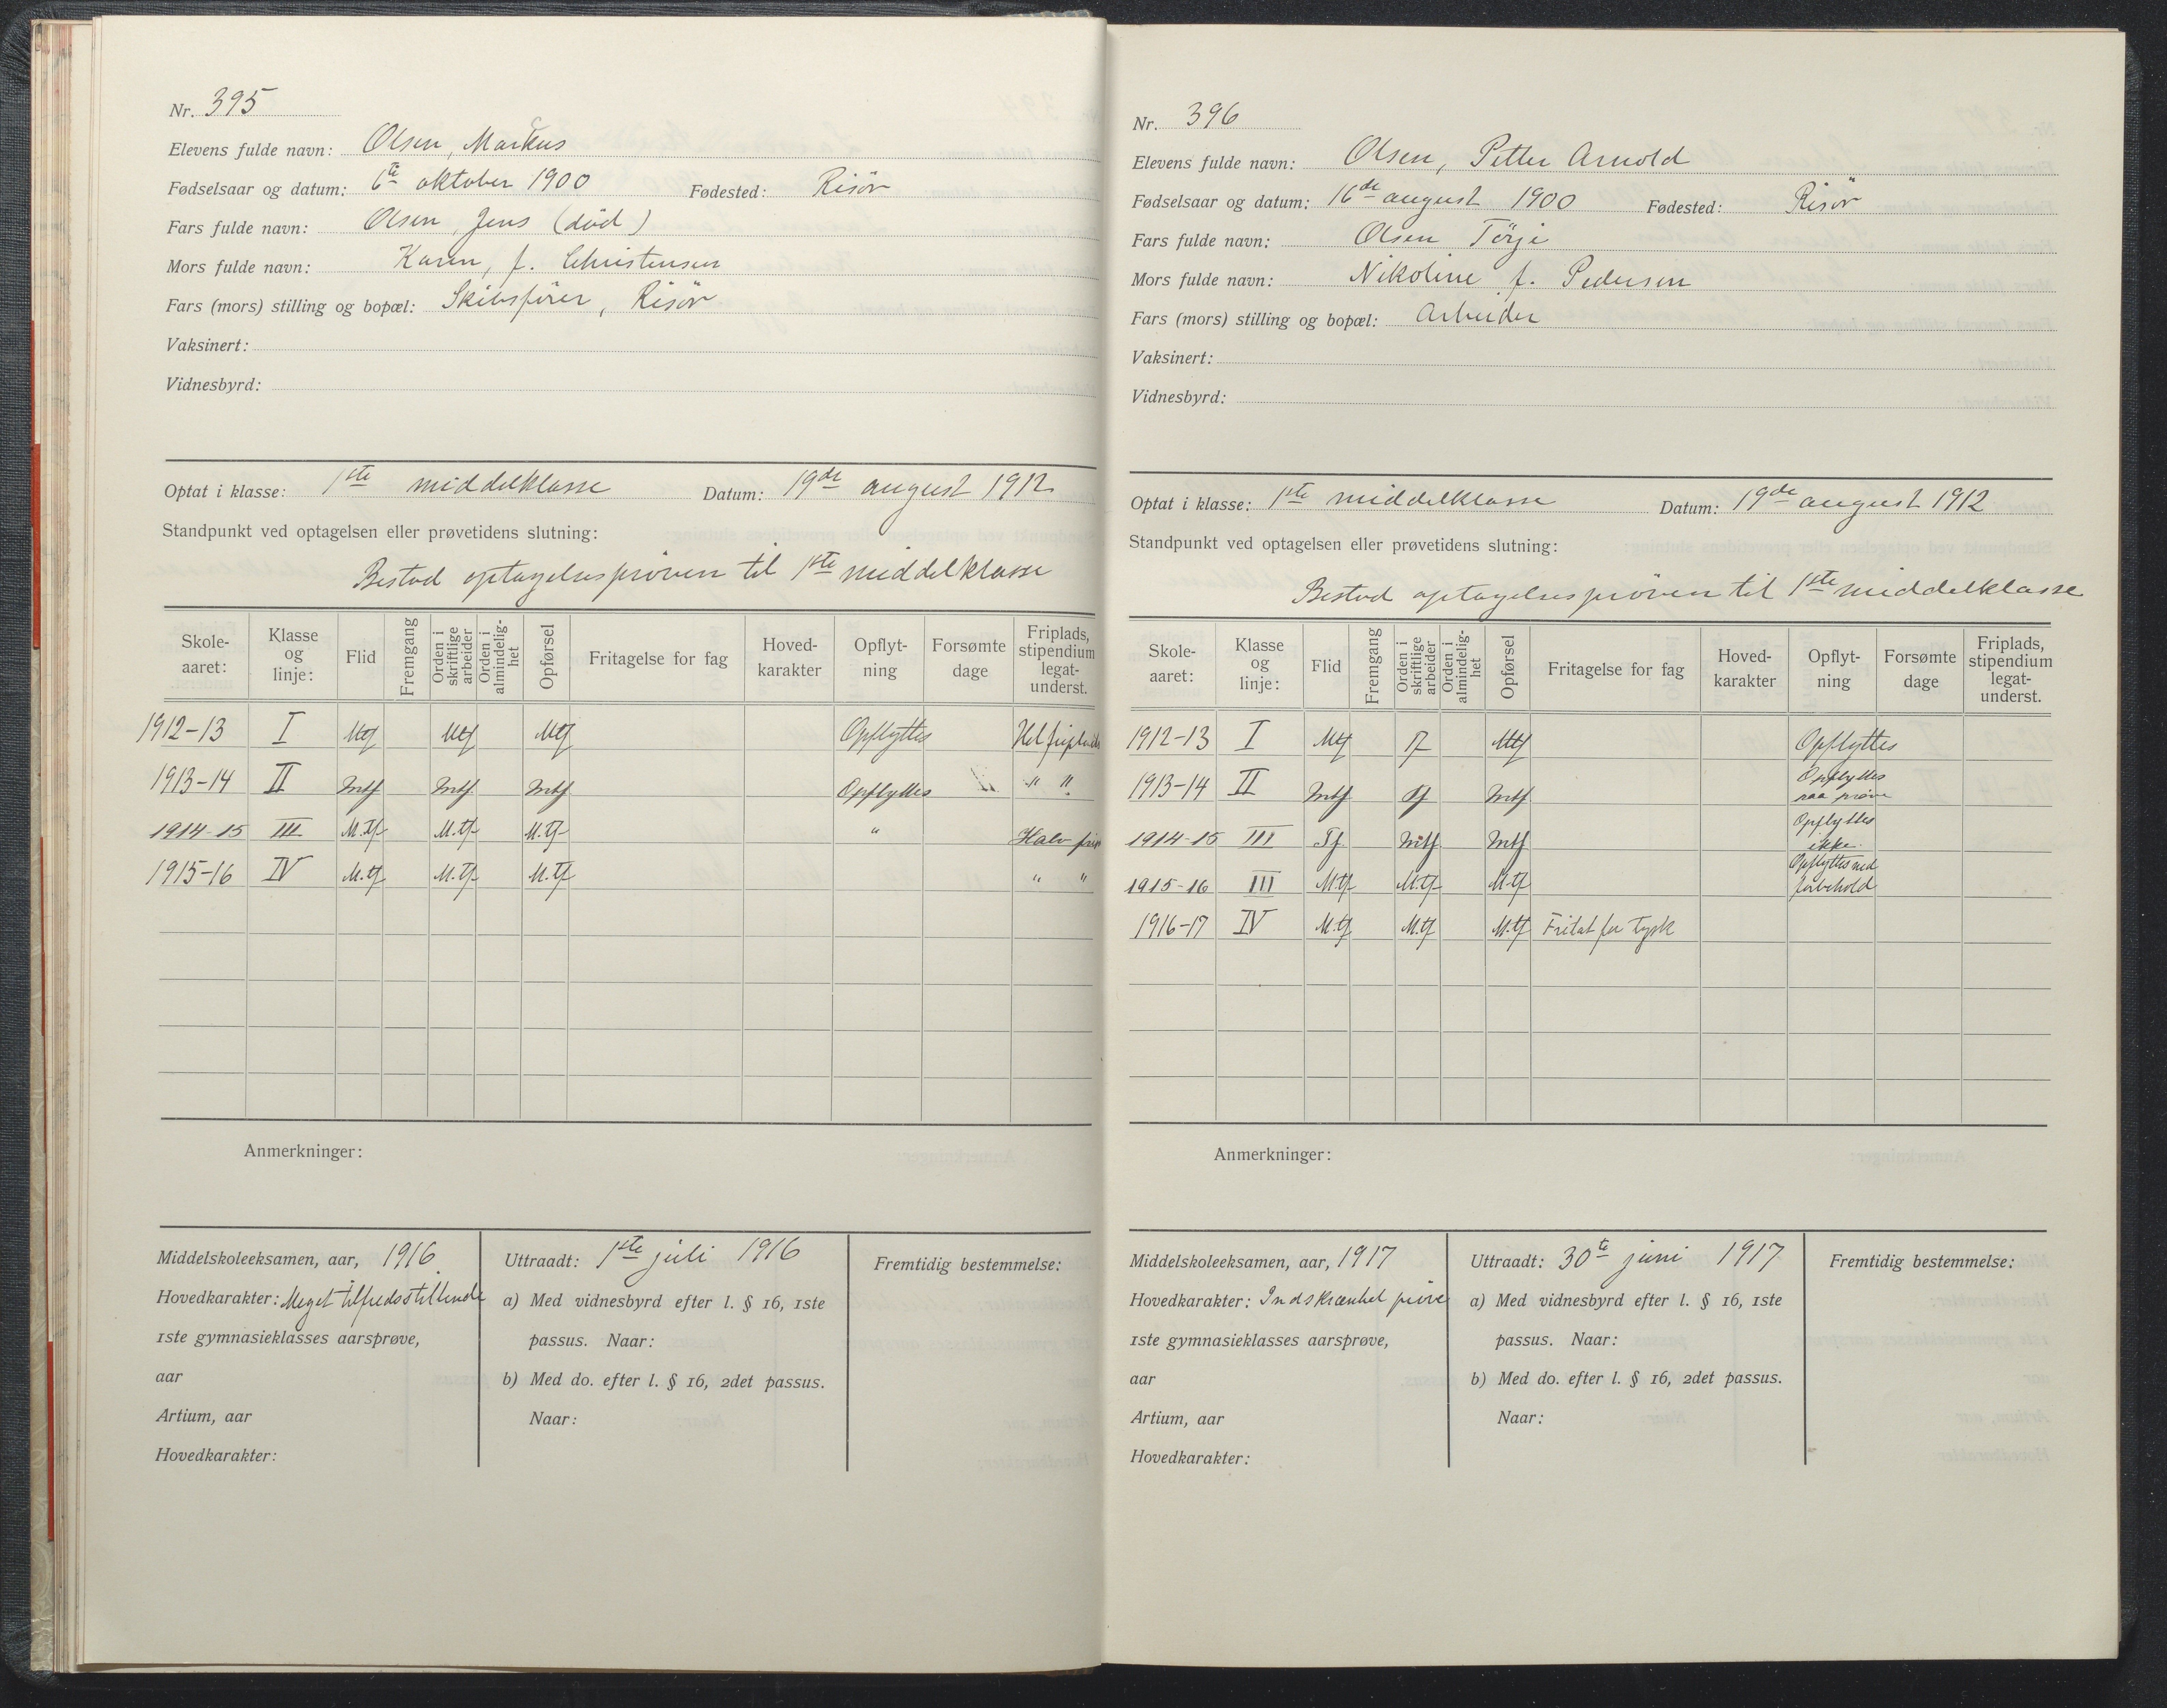 Nr. 395
Elevens fulde navn: Olsen, Markus
Fødselsaar og datum: 6te oktober 1900 Fødested: Risör
Fars fulde navn: Olsen, Jens (död)
Mors fulde navn: Karen, f. Christensen
Fars (mors) stilling og bopæl: Skibsförer, Risör
Vaksinert:
Vidnesbyrd:
Optat i klasse: 1ste middelklasse Datum: 19de august 1912
Standpunkt ved optagelsen eller prøvetidens slutning:
Bestod optagelsespröven til 1ste middelklasse
Skole-aaret: Klasse og linje: Flid Fremgang Orden i skriftlige arbeider Orden i almindelig-het Opførsel Fritagelse for fag Hoved-karakter Opflyt-ning Forsømte dage Friplads, stipendium legat-underst.
1912-13 I Mtf Mtf Mtf Opflyttes Hel friplads
1913-14 II Mtf Mtf Mtf Opflyttes " "
1914-15 III M.tf M.tf M.tf " Halv
1915-16 IV M.tf M.tf M.tf " "
Anmerkninger:
Middelskoleeksamen, aar, 1916
Hovedkarakter: Meget tilfredsstillende
1ste gymnasieklasses aarsprøve,
aar
Artium, aar
Hovedkarakter:
Uttraadt: 1ste juli 1916
a) Med vidnesbyrd efter l. § 16, 1ste
passus. Naar:
b) Med do. efter l. § 16, 2det passus.
Naar:
Fremtidig bestemmelse:
Nr. 396
Elevens fulde navn: Olsen, Petter Arnold
Fødselsaar og datum: 16de august 1900 Fødested: Risör
Fars fulde navn: Olsen Törje
Mors fulde navn: Nikoline f. Pedersen
Fars (mors) stilling og bopæl: Arbeider
Vaksinert:
Vidnesbyrd:
Optat i klasse: 1ste middelklasse Datum: 19de august 1912
Standpunkt ved optagelsen eller prøvetidens slutning:
Bestod optagelsespröven til 1ste middelklasse
Skole-aaret: Klasse og linje: Flid Fremgang Orden i skriftlige arbeider Orden i almindelig-het Opførsel Fritagelse for fag Hoved-karakter Opflyt-ning Forsømte dage Friplads, stipendium legat-underst.
1912-13 I Mtf Tf Mtf Opflyttes
1913-14 II Mtf Tf Mtf Opflyttes paa prøve
1914-15 III Tf Mtf Mtf Opflyttes ikke.
1915-16 III M.tf M.tf M.tf Opflyttes med forbehold
1916-17 IV M.tf M.tf M.tf Fritat for tysk
Anmerkninger:
Middelskoleeksamen, aar, 1917
Hovedkarakter: Indskrænket pröve
1ste gymnasieklasses aarsprøve,
aar
Artium, aar
Hovedkarakter:
Uttraadt: 30te juni 1917
a) Med vidnesbyrd efter l. § 16, 1ste
passus. Naar:
b) Med do. efter l. § 16, 2det passus.
Naar:
Fremtidig bestemmelse: